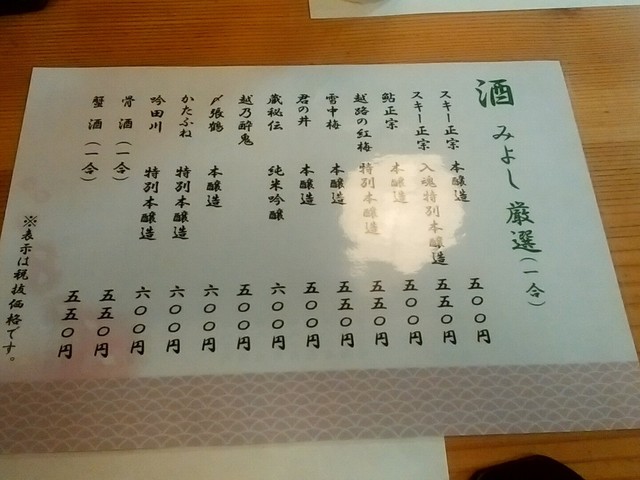 酒 みよし 厳選(一合)
スキー正宗 本醸造 五〇〇円
スキー正宗 入魂特別本醸造 五五〇円
鮎正宗 本醸造 五〇〇円
越路の紅梅 特別本醸造 五五〇円
雪中梅 本醸造 五五〇円
君の井 本醸造 五〇〇円
蔵秘伝 純米吟醸 六〇〇円
越乃酔鬼 五〇〇円
〆張鶴 本醸造 六〇〇円
かたふね 特別本醸造 六〇〇円
吟田川 特別本醸造 六〇〇円
骨酒(一合) 五五〇円
蟹酒(一合) 五五〇円
※表示は税抜価格です。